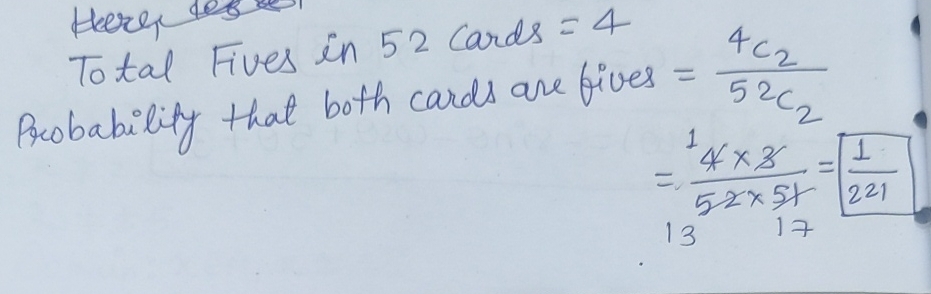 Here,
Total Fives in 52 Cards = 4
Probability that both cards are fives = ⁴C₂ / 52C₂
= ¹4 × 3 / 52 × 51 = 1 / 221
13 17